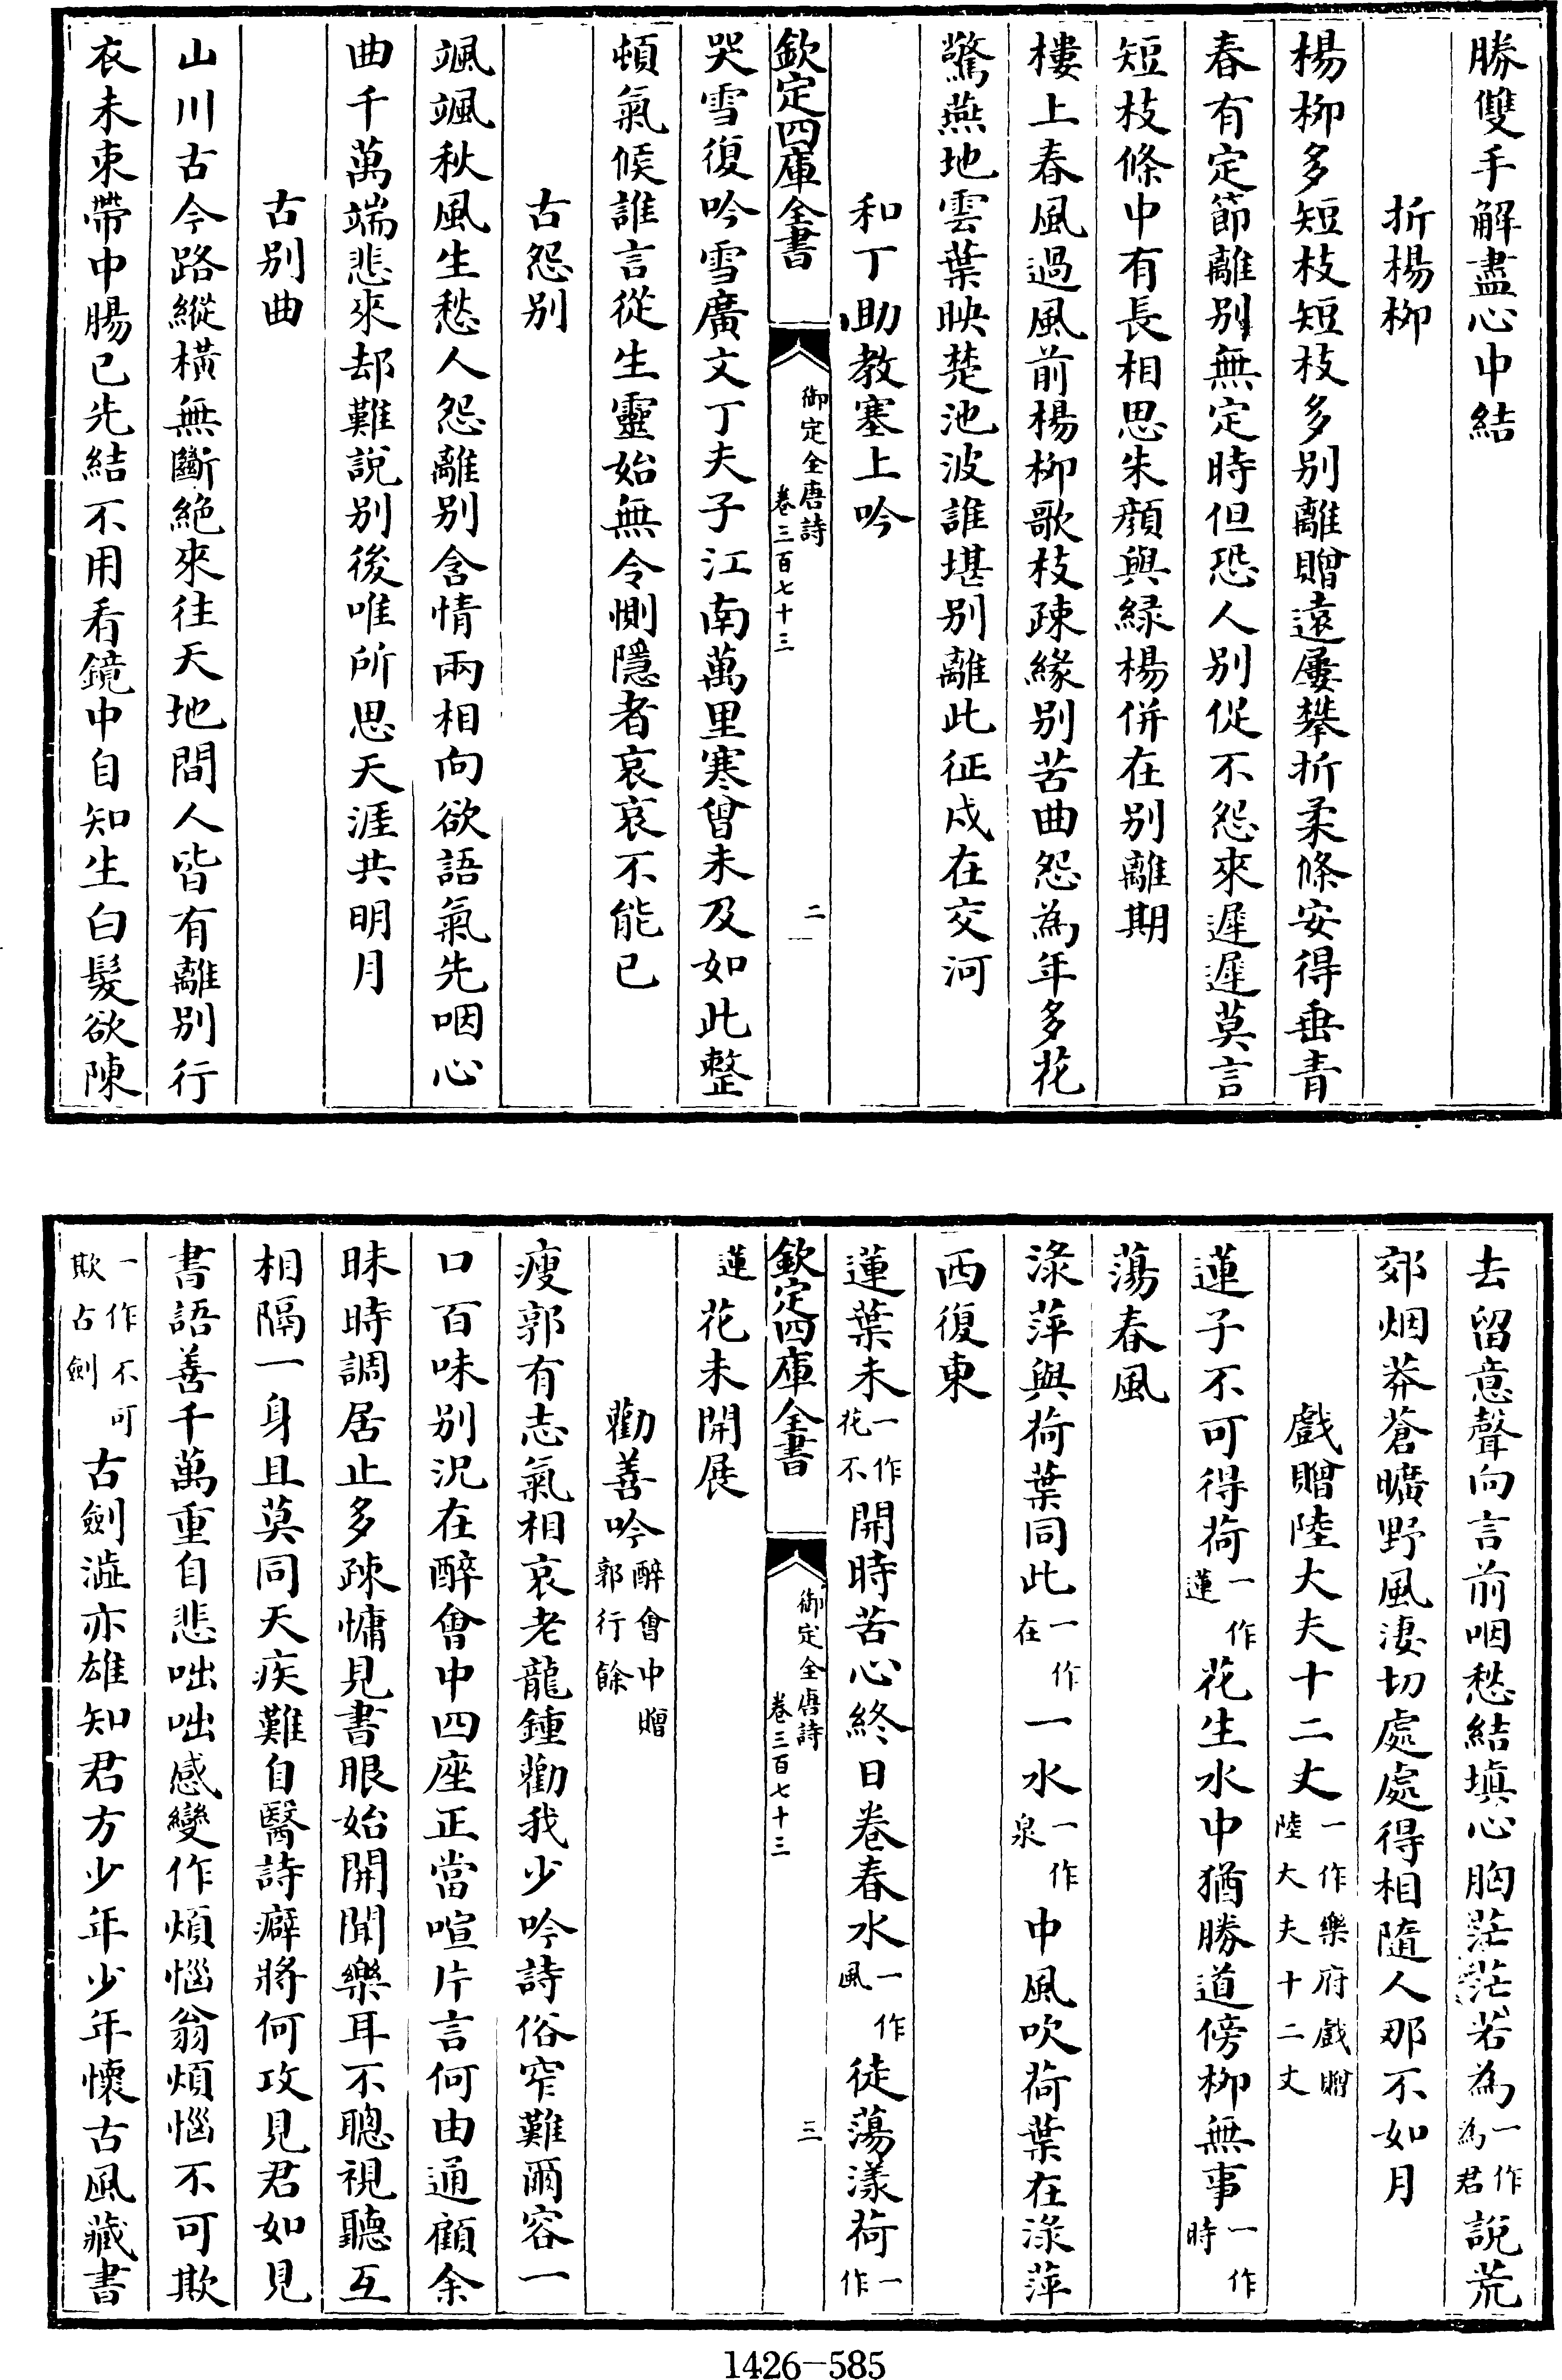 勝雙手解盡心中結
折楊柳
楊柳多短枝短枝多别離贈遠屢攀折柔條安得垂青
春有定節離别無定時但恐人别促不怨來遲遲莫言
短枝條中有長相思朱顔與緑楊併在别離期
樓上春風過風前楊柳歌枝疎緣别苦曲怨為年多花
驚燕地雲葉映楚池波誰堪别離此征戍在交河
和丁助教塞上吟
欽定四庫全書
御定全唐詩
卷三百七十三
二
哭雪復吟雪廣文丁夫子江南萬里寒曾未及如此整
頓氣候誰言從生靈始無令惻隱者哀哀不能已
古怨别
颯颯秋風生愁人怨離别含情兩相向欲語氣先咽心
曲千萬端悲來却難說别後唯所思天涯共明月
古别曲
山川古今路縱横無斷絶來往天地間人皆有離别行
衣未束帶中腸已先結不用看鏡中自知生白髮欲陳
去留意聲向言前咽愁結填心胸茫茫若為一作為君說荒
郊烟莽蒼曠野風淒切處處得相隨人那不如月
戲贈陸大夫十二丈一作樂府戲贈陸大夫十二丈
蓮子不可得荷一作蓮花生水中猶勝道傍柳無事一作時
蕩春風
淥萍與荷葉同此一作在一水一作泉中風吹荷葉在淥萍
西復東
蓮葉未一作花不開時苦心終日卷春水一作風徒蕩漾荷一作
欽定四庫全書
御定全唐詩
卷三百七十三
三
蓮花未開展
勸善吟醉會中贈郭行餘
瘦郭有志氣相哀老龍鍾勸我少吟詩俗窄難爾容一
口百味别況在醉會中四座正當喧片言何由通顧余
昧時調居止多疎慵見書眼始開聞樂耳不聰視聽互
相隔一身且莫同天疾難自醫詩癖將何攻見君如見
書語善千萬重自悲咄咄感變作煩惱翁煩惱不可欺
一作不可欺古劍古劍澁亦雄知君方少年少年懷古風藏書
1426—585